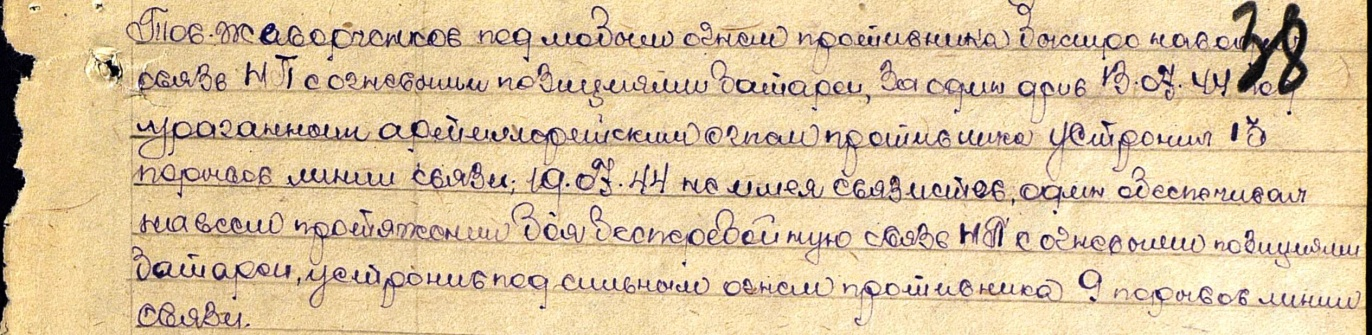 Тов. Жаворонков под любым огнем противника быстро наводил 38
связь НП с огневыми позициями батареи, За один день 13.07.44 под
ураганным артиллерийским огнем противника устронил 15
порывов линии связи; 19.07.44 не имея связистов, один обеспечивал
на всем протяжении боя бесперебойную связь НП с огневыми позициями
батареи, устронив под сильным огнем противника 9 порывов линии
связи.